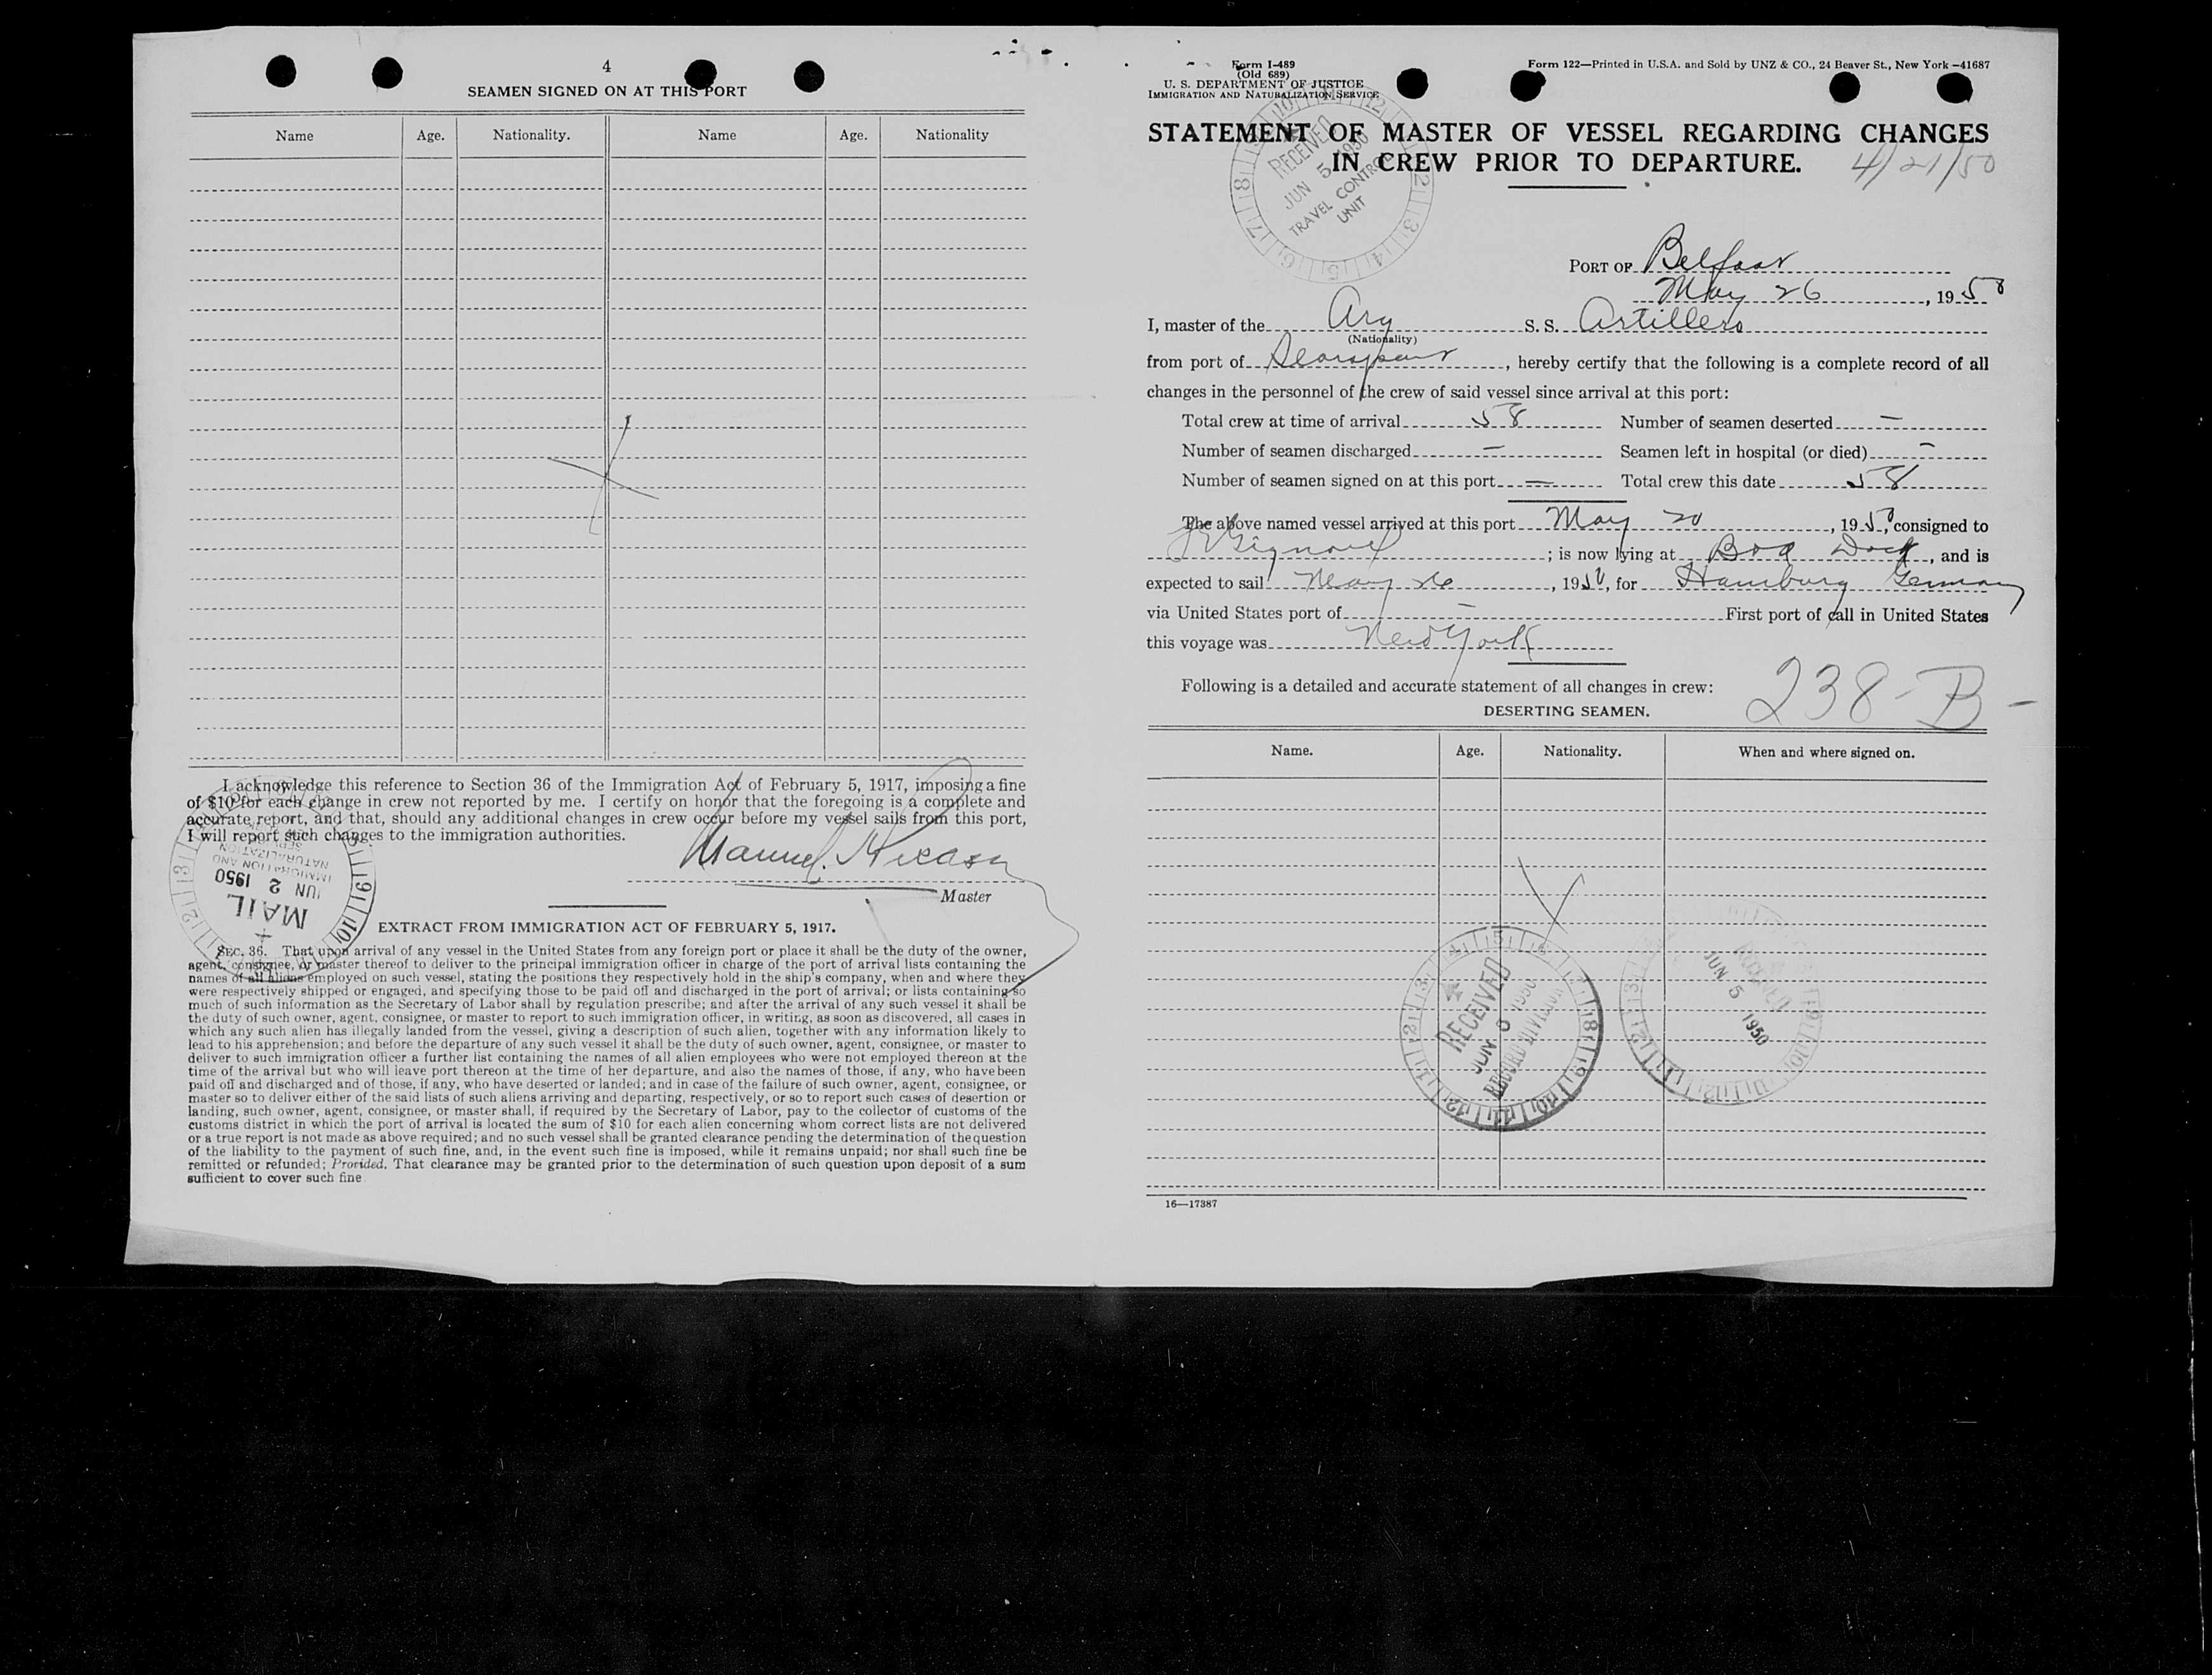 4
SEAMEN SIGNED ON AT THIS PORT
Name Age. Nationality. Name Age. Nationality
I acknowledge this reference to Section 36 of the Immigration Act of February 5, 1917, imposing a fine
of $10 for each change in crew not reported by me. I certify on honor that the foregoing is a complete and
accurate report, and that, should any additional changes in crew occur before my vessel sails from this port,
I will report such changes to the immigration authorities.
Manuel
Master
IMMIGRATION AND
NATURALIZATION
JUN 2 1950
MAIL
EXTRACT FROM IMMIGRATION ACT OF FEBRUARY 5, 1917.
SEC. 36. That upon arrival of any vessel in the United States from any foreign port or place it shall be the duty of the owner,
agent, consignee, or master thereof to deliver to the principal immigration officer in charge of the port of arrival lists containing the
names of all aliens employed on such vessel, stating the positions they respectively hold in the ship's company, when and where they
were respectively shipped or engaged, and specifying those to be paid off and discharged in the port of arrival; or lists containing so
much of such information as the Secretary of Labor shall by regulation prescribe; and after the arrival of any such vessel it shall be
the duty of such owner, agent, consignee, or master to report to such immigration officer, in writing, as soon as discovered, all cases in
which any such alien has illegally landed from the vessel, giving a description of such alien, together with any information likely to
lead to his apprehension; and before the departure of any such vessel it shall be the duty of such owner, agent, consignee, or master to
deliver to such immigration officer a further list containing the names of all alien employees who were not employed thereon at the
time of the arrival but who will leave port thereon at the time of her departure, and also the names of those, if any, who have been
paid off and discharged and of those, if any, who have deserted or landed; and in case of the failure of such owner, agent, consignee, or
master so to deliver either of the said lists of such aliens arriving and departing, respectively, or so to report such cases of desertion or
landing, such owner, agent, consignee, or master shall, if required by the Secretary of Labor, pay to the collector of customs of the
customs district in which the port of arrival is located the sum of $10 for each alien concerning whom correct lists are not delivered
or a true report is not made as above required; and no such vessel shall be granted clearance pending the determination of the question
of the liability to the payment of such fine, and, in the event such fine is imposed, while it remains unpaid; nor shall such fine be
remitted or refunded; Provided, That clearance may be granted prior to the determination of such question upon deposit of a sum
sufficient to cover such fine.
Form I-489
(Old 689)
U. S. DEPARTMENT OF JUSTICE
IMMIGRATION AND NATURALIZATION SERVICE
Form 122—Printed in U.S.A. and Sold by UNZ & CO., 24 Beaver St., New York—41687
STATEMENT OF MASTER OF VESSEL REGARDING CHANGES
IN CREW PRIOR TO DEPARTURE.
4/21/50
RECEIVED
JUN 5 1950
TRAVEL CONTROL
UNIT
PORT OF Belfast
May 26, 1950
I, master of the Arg S. S. Artillero
(Nationality)
from port of Searsport, hereby certify that the following is a complete record of all
changes in the personnel of the crew of said vessel since arrival at this port:
Total crew at time of arrival 58 Number of seamen deserted —
Number of seamen discharged — Seamen left in hospital (or died) —
Number of seamen signed on at this port — Total crew this date 58
The above named vessel arrived at this port May 20, 1950, consigned to
; is now lying at Dock, and is
expected to sail May 26, 1950, for Hamburg Germany
via United States port of — First port of call in United States
this voyage was New York
Following is a detailed and accurate statement of all changes in crew:
238-B-
DESERTING SEAMEN.
Name. Age. Nationality. When and where signed on.
RECEIVED
JUN 6 1950
RECORD DIVISION
RECEIVED
JUN 5 1950
16—17387